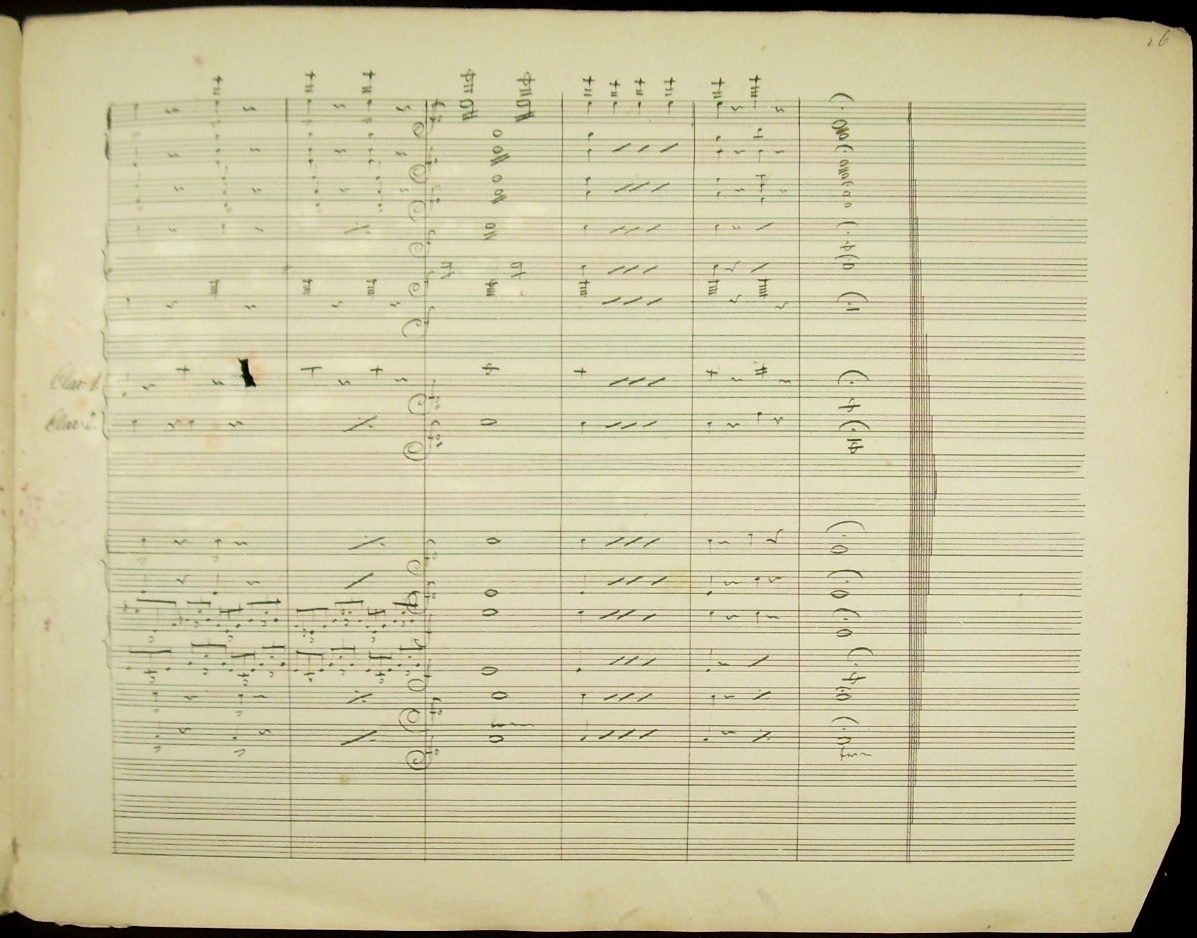 26
Clar. 1.
Clar. 2.